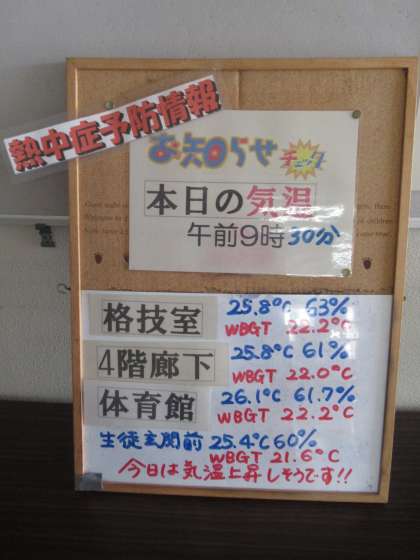 熱中症予防情報
お知らせ
チェック
本日の気温
午前9時30分
格技室 25.8℃ 63%
WBGT 22.2℃
4階廊下 25.8℃ 61%
WBGT 22.0℃
体育館 26.1℃ 61.7%
WBGT 22.2℃
生徒玄関前 25.4℃ 60%
WBGT 21.6℃
今日は気温上昇しそうです!!